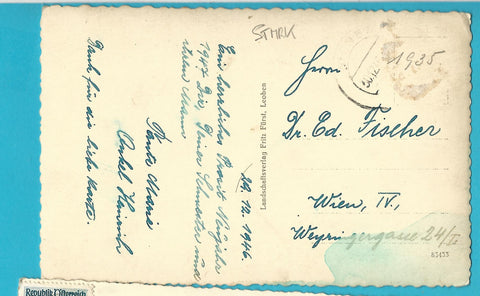 STMRK
1935
29. 12. 1946
Ein herzliches Prosit Neujahr
1947 Dir, Deiner Schwester und
ihrem Mann
Tante Marie
Onkel Heinrich
Dank für die liebe Karte.
Landschaftsverlag Fritz Fürst, Leoben
Herrn
Dr. Ed. Fischer
Wien, IV.,
Weyringergasse 24/
83433
Republik Österreich